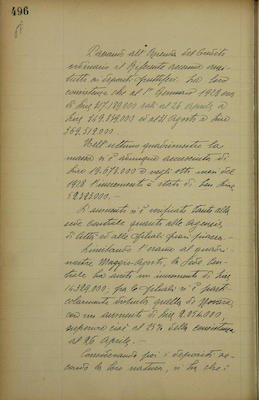 496
Passando all'Esercizio del Credito
ordinario il Referente
tutto ai depositi fruttiferi. La loro
consistenza che al 1° Gennaio 1918 era
di lire 217.189.000 salì al 26 Aprile a
lire 249.839.000 ed al 31 Agosto a lire
269.512.000.
Nell'ultimo quadrimestre la
massa si è dunque accresciuta di
lire 19.673.000 e negli otto mesi del
1918 l'incremento è stato di ben lire
52.323.000.
L'aumento si è verificato tanto alla
sede centrale quanto alle Agenzie
di Città ed alle Filiali fuori
Limitando l'esame al quadri-
mestre Maggio-Agosto, la Sede Cen-
trale ha avuto un incremento di lire
14.329.000; fra le Filiali si è parti-
colarmente distinta quella di Novara,
con un aumento di lire 2.054.000,
superiore cioè al 25% della consistenza
al 26 Aprile.
Considerando poi i depositi se-
condo la loro natura, si ha che: